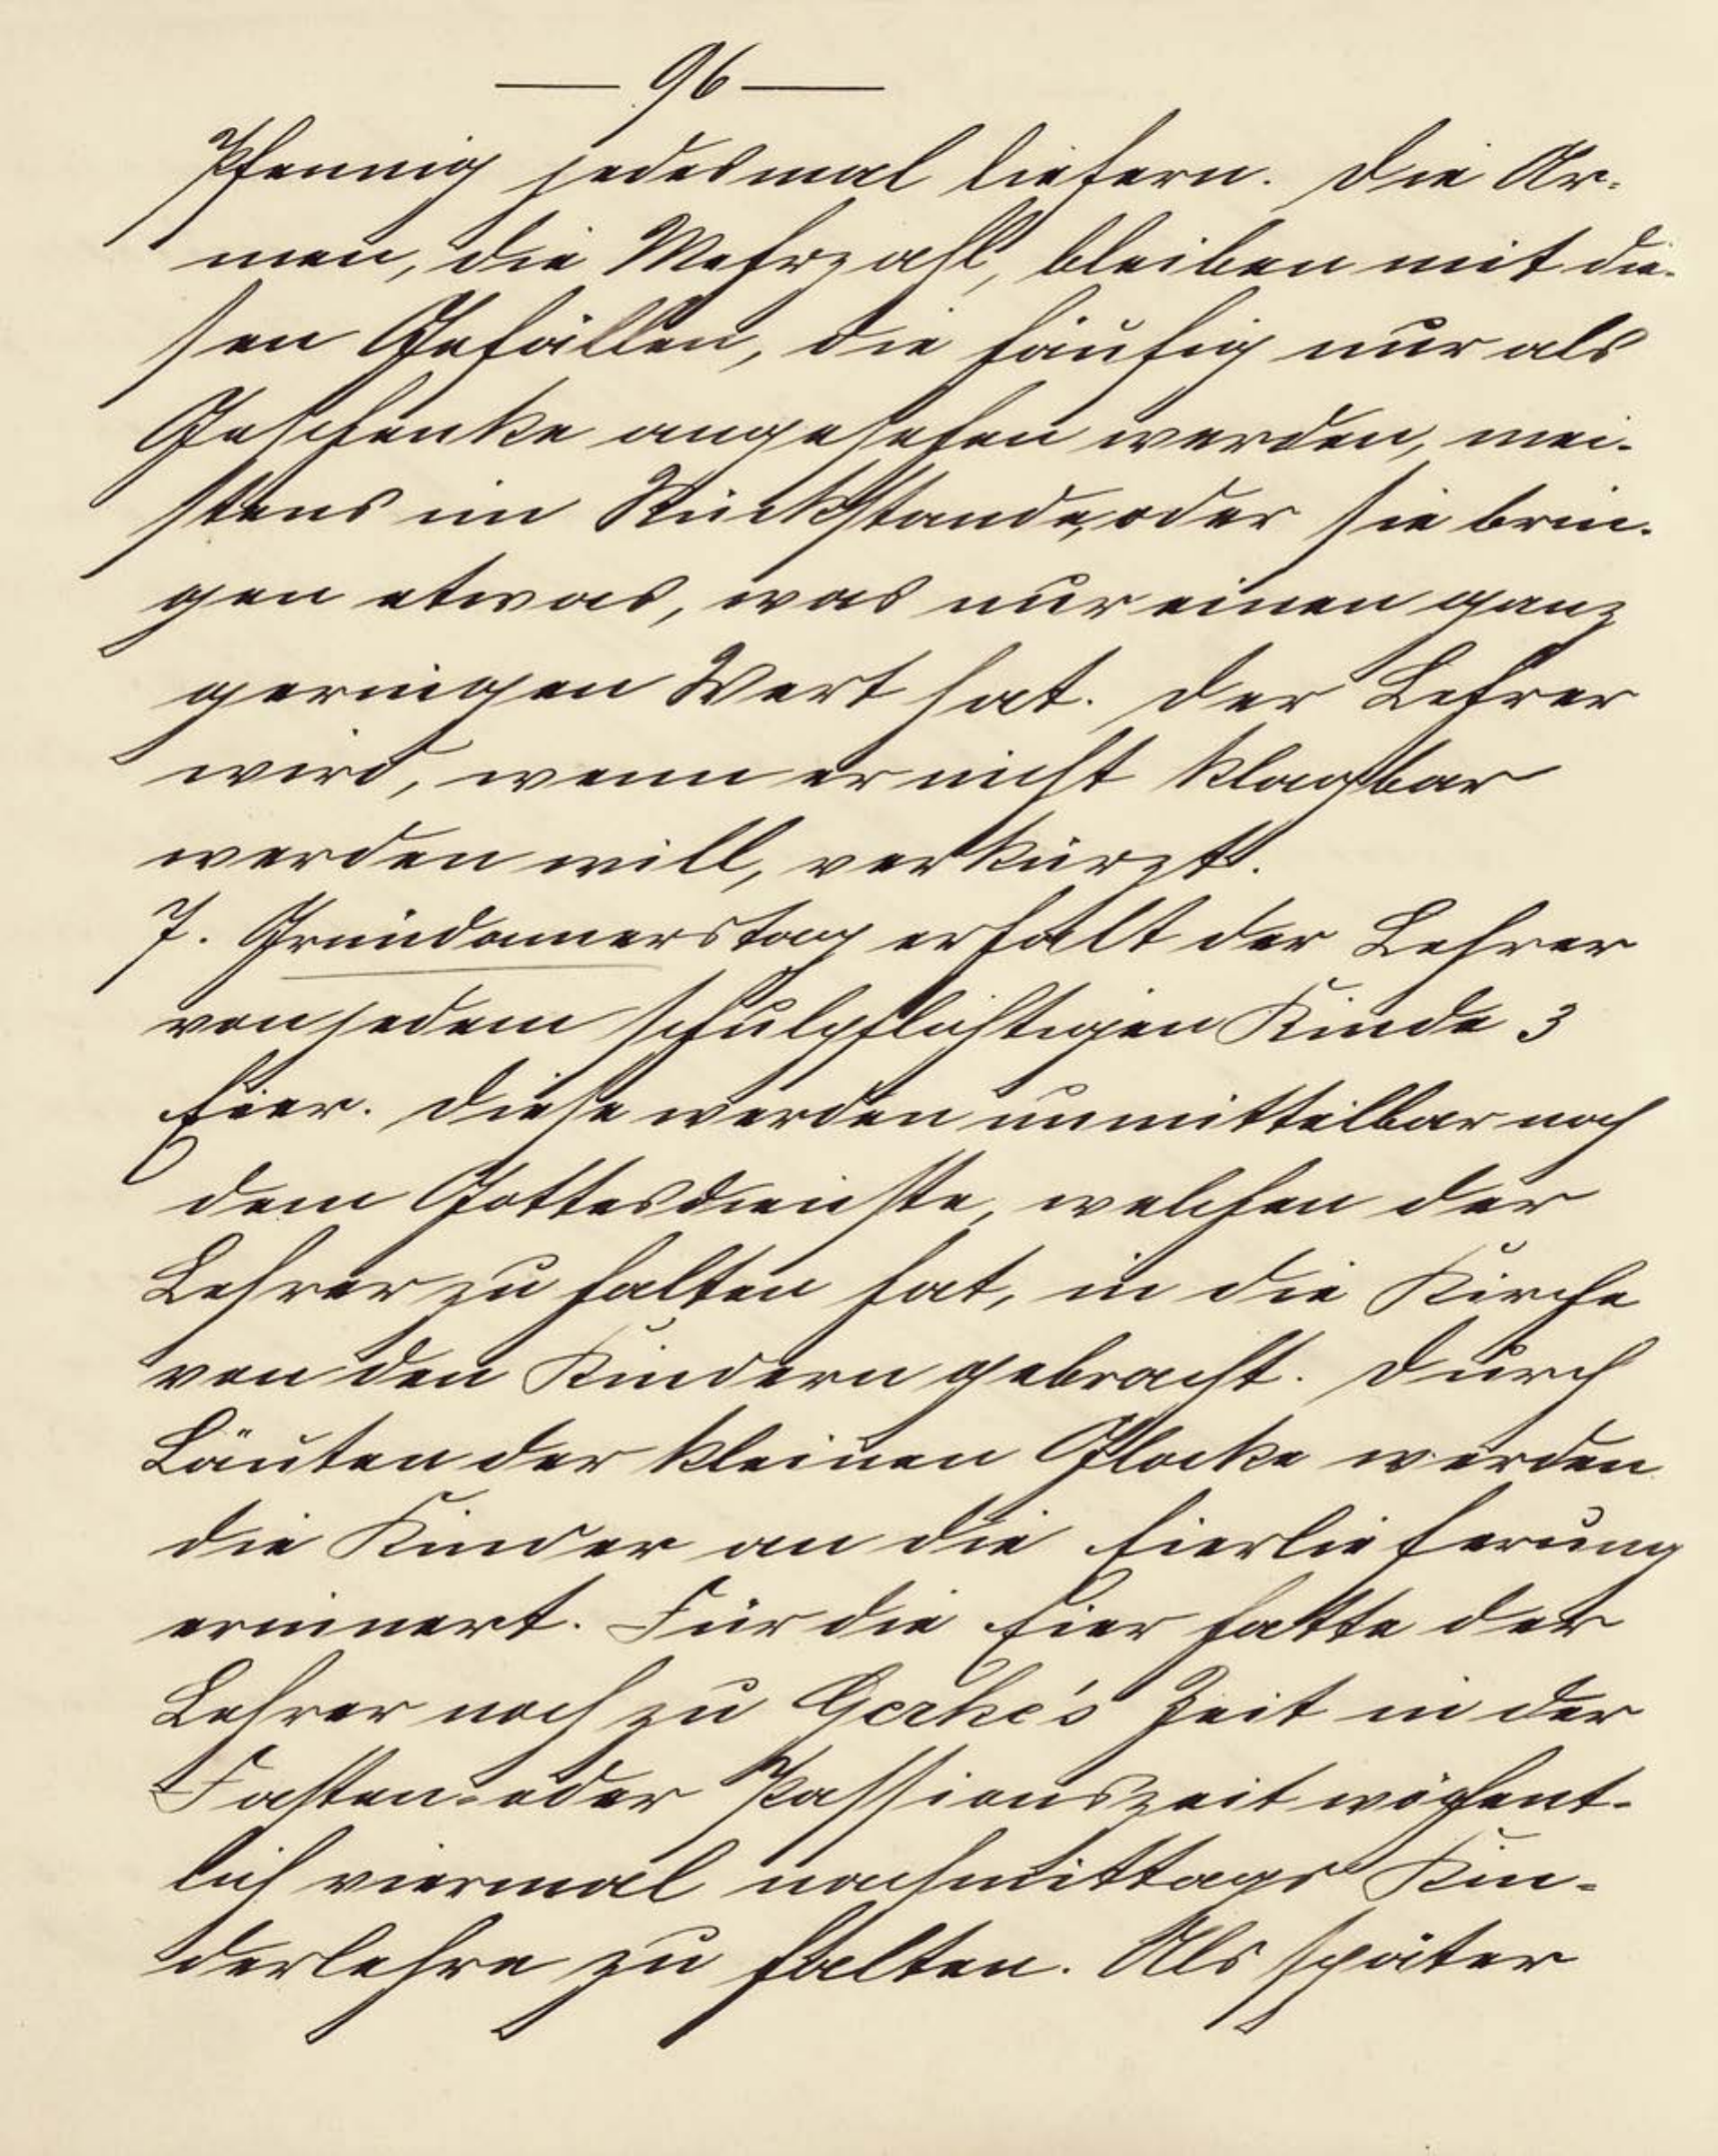 — 96 —
Pfennig jedesmal liefern. Die Ar-
men, die Mehrzahl, bleiben mit die-
sen Gefällen, die häufig nur als
Geschenke angesehen werden, mei-
stens im Rückstande, oder sie brin-
gen etwas, was nur einen ganz
geringen Wert hat. Der Lehrer
wird, wenn er nicht klagbar
werden will, verkürzt.
7. Gründonnerstag erhält der Lehrer
von jedem schulpflichtigen Kinde 3
Eier. Diese werden unmittelbar nach
dem Gottesdienste, welchen der
Lehrer zu halten hat, in die Kirche
von den Kindern gebracht. Durch
Läuten der kleinen Glocke werden
die Kinder an die Eierlieferung
erinnert. Für die Eier hatte der
Lehrer noch zu Gerke's Zeit in der
Fasten- oder Passionszeit wöchent-
lich viermal nachmittags Kin-
derlehre zu halten. Als später